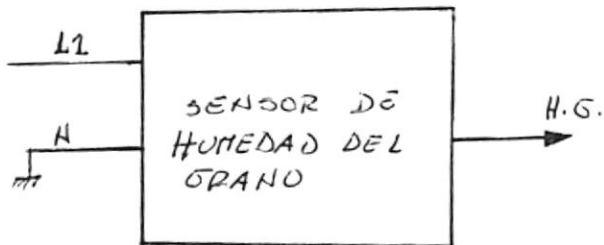 L1
SENSOR DE
HUMEDAD DEL
GRANO
N
H.G.